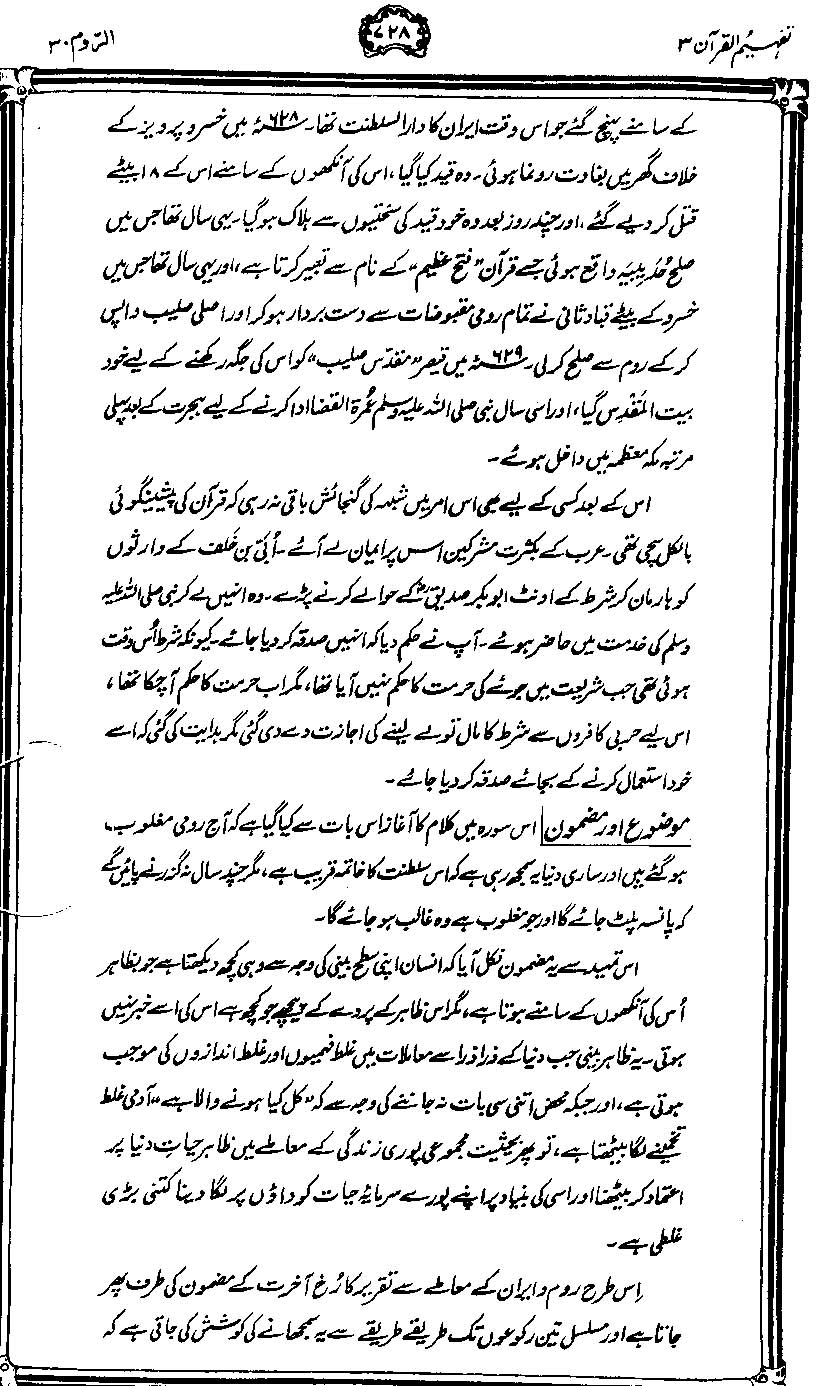 تفہیم القرآن ۳
۷۲۸
الروم ۳۰
کے سامنے پہنچ گئے جو اس وقت ایران کا دارالسلطنت تھا۔ ۶۲۸ء میں خسرو پرویز کے
خلاف گھر میں بغاوت رونما ہوئی۔ وہ قید کیا گیا، اس کی آنکھوں کے سامنے اس کے ۱۸ بیٹے
قتل کر دیے گئے، اور چند روز بعد وہ خود قید کی سختیوں سے ہلاک ہوگیا۔ یہی سال تھا جس میں
صلح حُدَیبیہ واقع ہوئی جسے قرآن "فتح عظیم" کے نام سے تعبیر کرتا ہے، اور یہی سال تھا جس میں
خسرو کے بیٹے قباد ثانی نے تمام رومی مقبوضات سے دست بردار ہو کر اور اصلی صلیب واپس
کر کے روم سے صلح کر لی۔ ۶۲۹ء میں قیصر "مقدّس صلیب" کو اس کی جگہ رکھنے کے لیے خود
بیت المَقْدِس گیا، اور اسی سال نبی صلی اللہ علیہ وسلم عُمرۃ القضا ادا کرنے کے لیے ہجرت کے بعد پہلی
مرتبہ مکہ معظمہ میں داخل ہوئے۔
اس کے بعد کسی کے لیے بھی اس امر میں شبہ کی گنجائش باقی نہ رہی کہ قرآن کی پیشینگوئی
بالکل سچی تھی۔ عرب کے بکثرت مشرکین اس پر ایمان لے آئے۔ اُبَیّ بن خَلَف کے وارثوں
کو ہار مان کر شرط کے اونٹ ابوبکر صدیقؓ کے حوالے کرنے پڑے۔ وہ انہیں لے کر نبی صلی اللہ علیہ
وسلم کی خدمت میں حاضر ہوئے۔ آپ نے حکم دیا کہ انہیں صدقہ کر دیا جائے۔ کیونکہ شرط اُس وقت
ہوئی تھی جب شریعت میں جوئے کی حرمت کا حکم نہیں آیا تھا، مگر اب حرمت کا حکم آ چکا تھا،
اس لیے حربی کافروں سے شرط کا مال تو لے لینے کی اجازت دے دی گئی مگر ہدایت کی گئی کہ اسے
خود استعمال کرنے کے بجائے صدقہ کر دیا جائے۔
موضوع اور مضمون اس سورہ میں کلام کا آغاز اس بات سے کیا گیا ہے کہ آج رومی مغلوب
ہو گئے ہیں اور ساری دنیا یہ سمجھ رہی ہے کہ اس سلطنت کا خاتمہ قریب ہے، مگر چند سال نہ گزرنے پائیں گے
کہ پانسہ پلٹ جائے گا اور جو مغلوب ہے وہ غالب ہو جائے گا۔
اس تمہید سے یہ مضمون نکل آیا کہ انسان اپنی سطح بینی کی وجہ سے وہی کچھ دیکھتا ہے جو بظاہر
اُس کی آنکھوں کے سامنے ہوتا ہے، مگر اس ظاہر کے پردے کے پیچھے جو کچھ ہے اس کی اسے خبر نہیں
ہوتی۔ یہ ظاہر بینی جب دنیا کے ذرا ذرا سے معاملات میں غلط فہمیوں اور غلط اندازوں کی موجب
ہوتی ہے، اور جبکہ محض اتنی سی بات نہ جاننے کی وجہ سے کہ "کل کیا ہونے والا ہے" آدمی غلط
تخمینے لگا بیٹھتا ہے، تو پھر بحیثیت مجموعی پوری زندگی کے معاملے میں ظاہر حیاتِ دنیا پر
اعتماد کر بیٹھنا اور اسی کی بنیاد پر اپنے پورے سرمایۂ حیات کو داؤں پر لگا دینا کتنی بڑی
غلطی ہے۔
اِس طرح روم و ایران کے معاملے سے تقریر کا رُخ آخرت کے مضمون کی طرف پھر
جاتا ہے اور مسلسل تین رکوعوں تک طریقے طریقے سے یہ سمجھانے کی کوشش کی جاتی ہے کہ